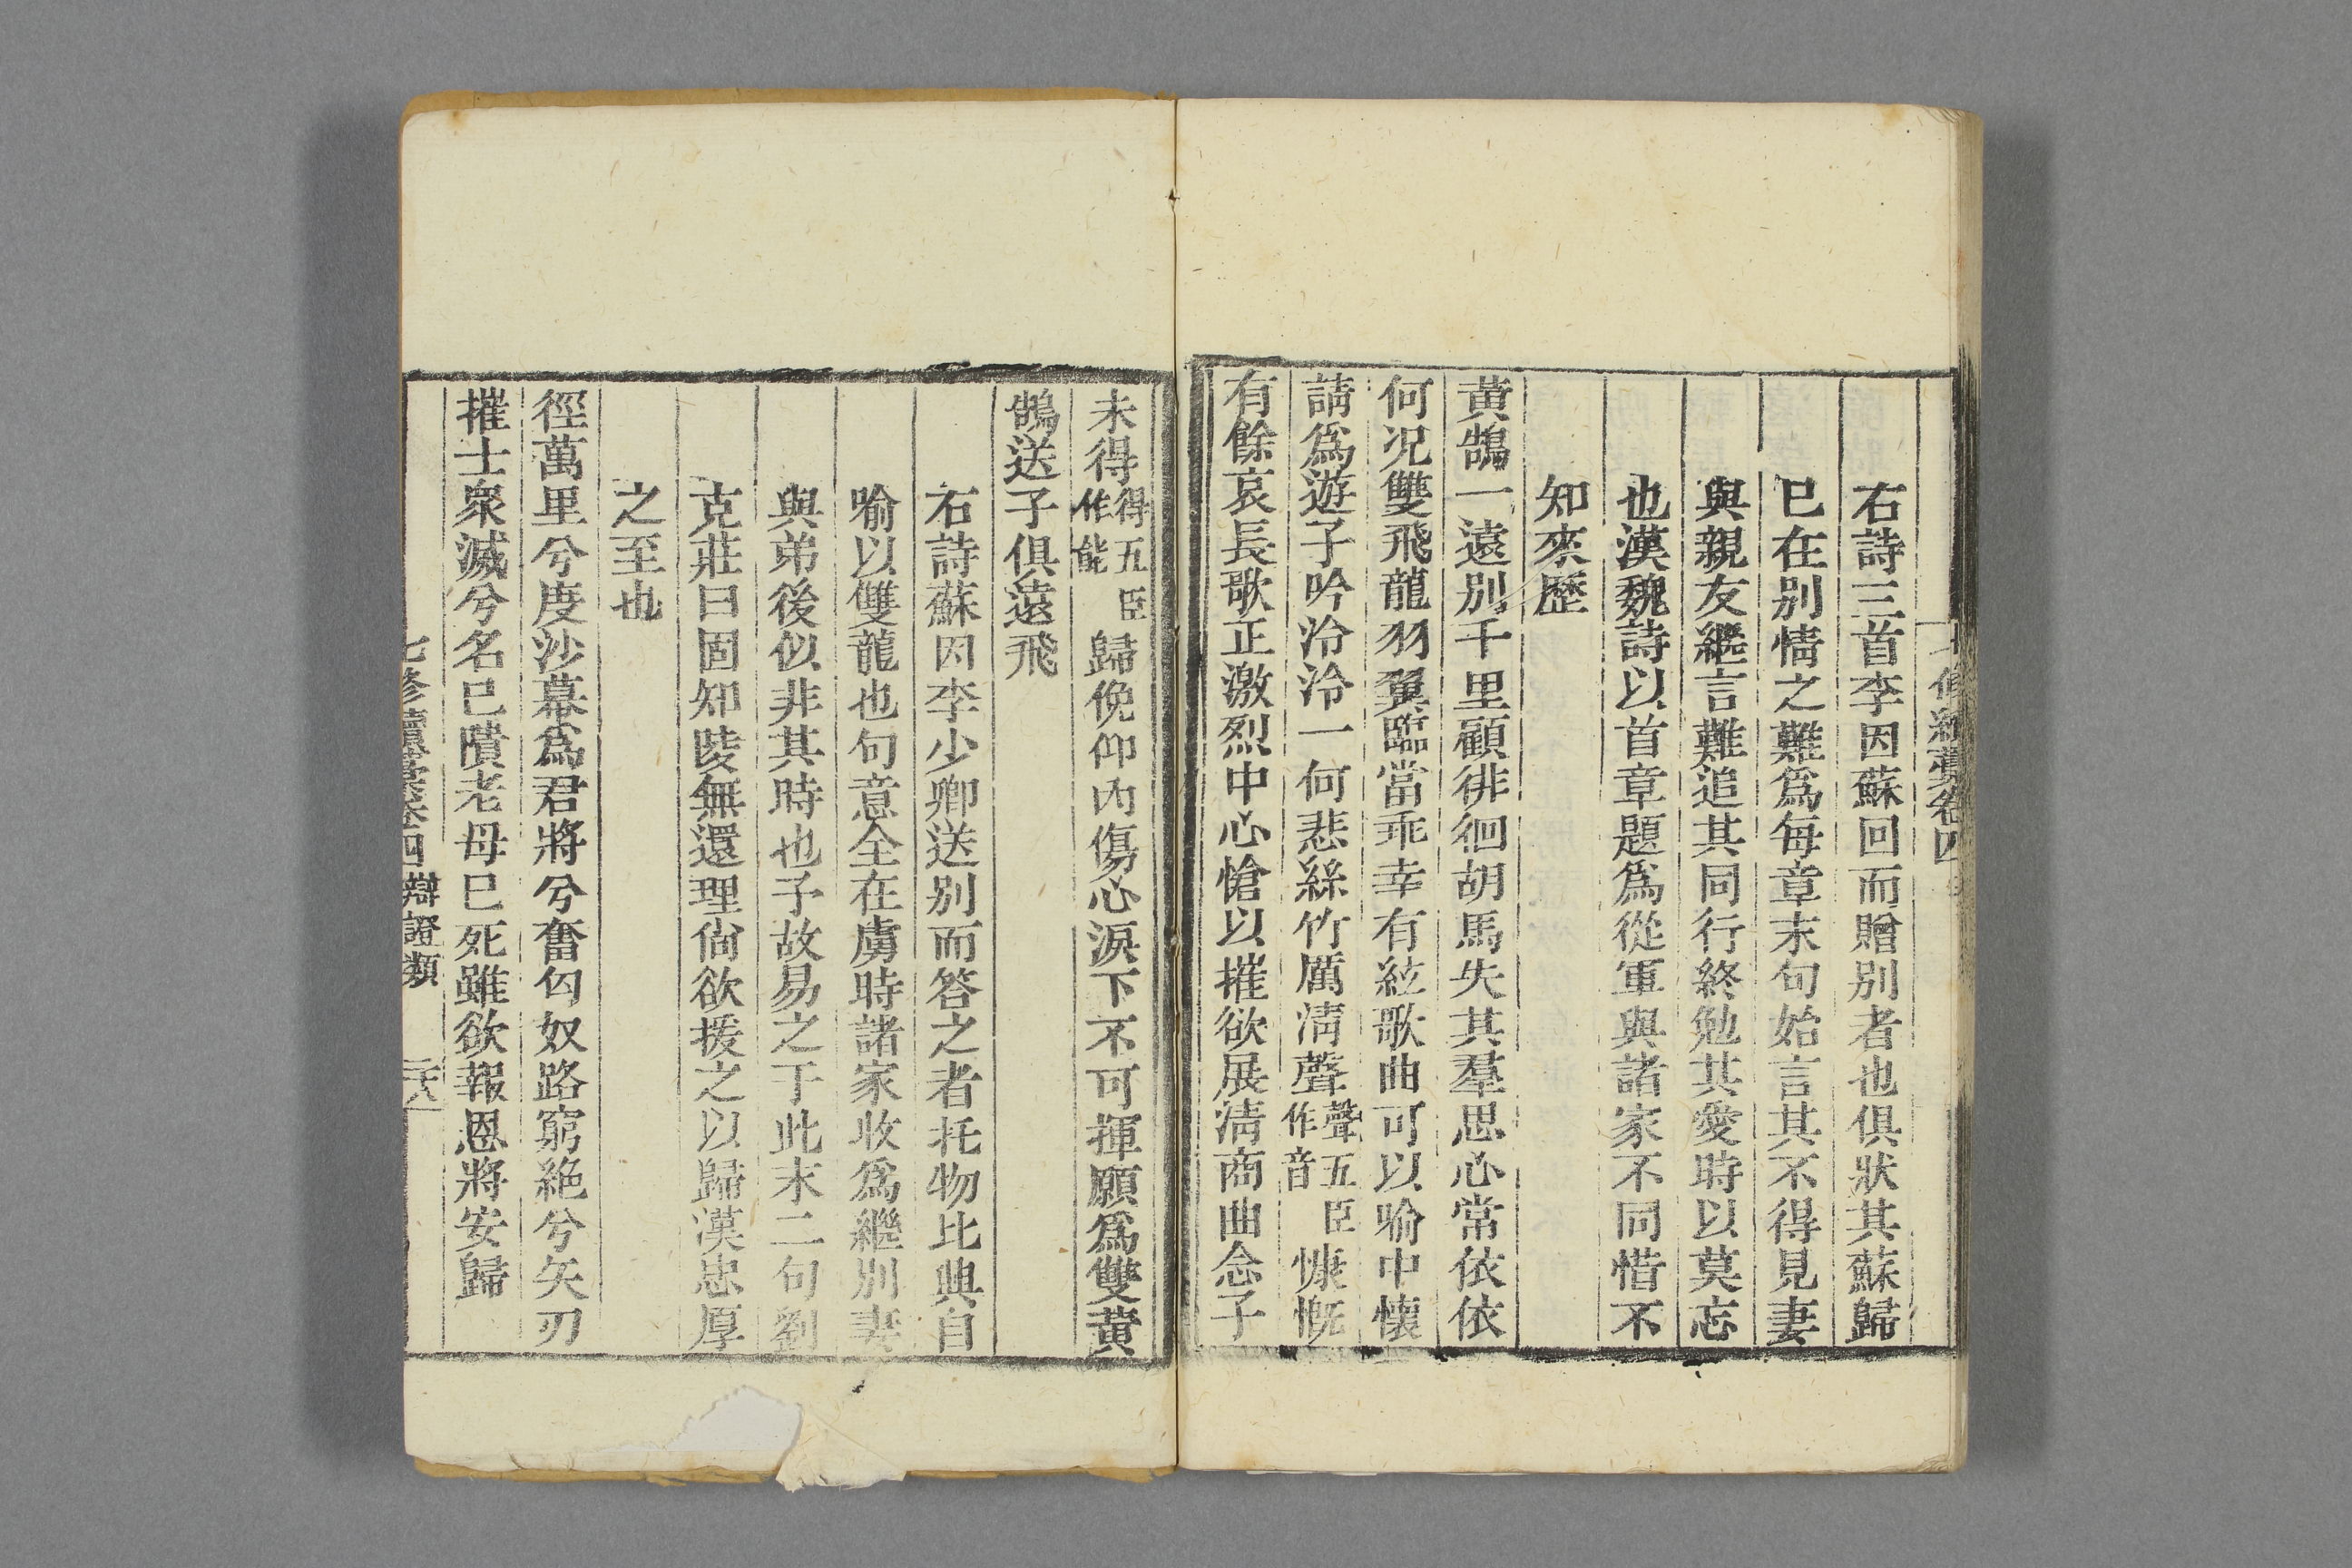 右詩三首李因蘇回而贈别者也俱狀其蘇歸
已在别情之難爲每章末句始言其不得見妻
與親友繼言難追其同行終勉其愛時以莫忘
也漢魏詩以首章題爲從軍與諸家不同惜不
知來歷
黄鵠一遠别千里顧徘徊胡馬失其羣思心常依依
何况雙飛龍羽翼臨當乖幸有絃歌曲可以喻中懷
請爲遊子吟泠泠一何悲絲竹厲淸聲聲五臣作音慷慨
有餘哀長歌正激烈中心愴以摧欲展淸商曲念子
未得得五臣作能歸俛仰内傷心淚下不可揮願爲雙黄
鵠送子俱遠飛
右詩蘇因李少卿送别而答之者托物比興自
喻以雙龍也句意全在虜時諸家收爲繼别妻
與弟後似非其時也子故易之于此末二句劉
克莊曰固知陵無還理尙欲援之以歸漢忠厚
之至也
徑萬里兮度沙幕爲君將兮奮匈奴路窮絶兮矢刃
摧士衆滅兮名已隤老母已死雖欲報恩將安歸
七修續藁卷四 辯證類